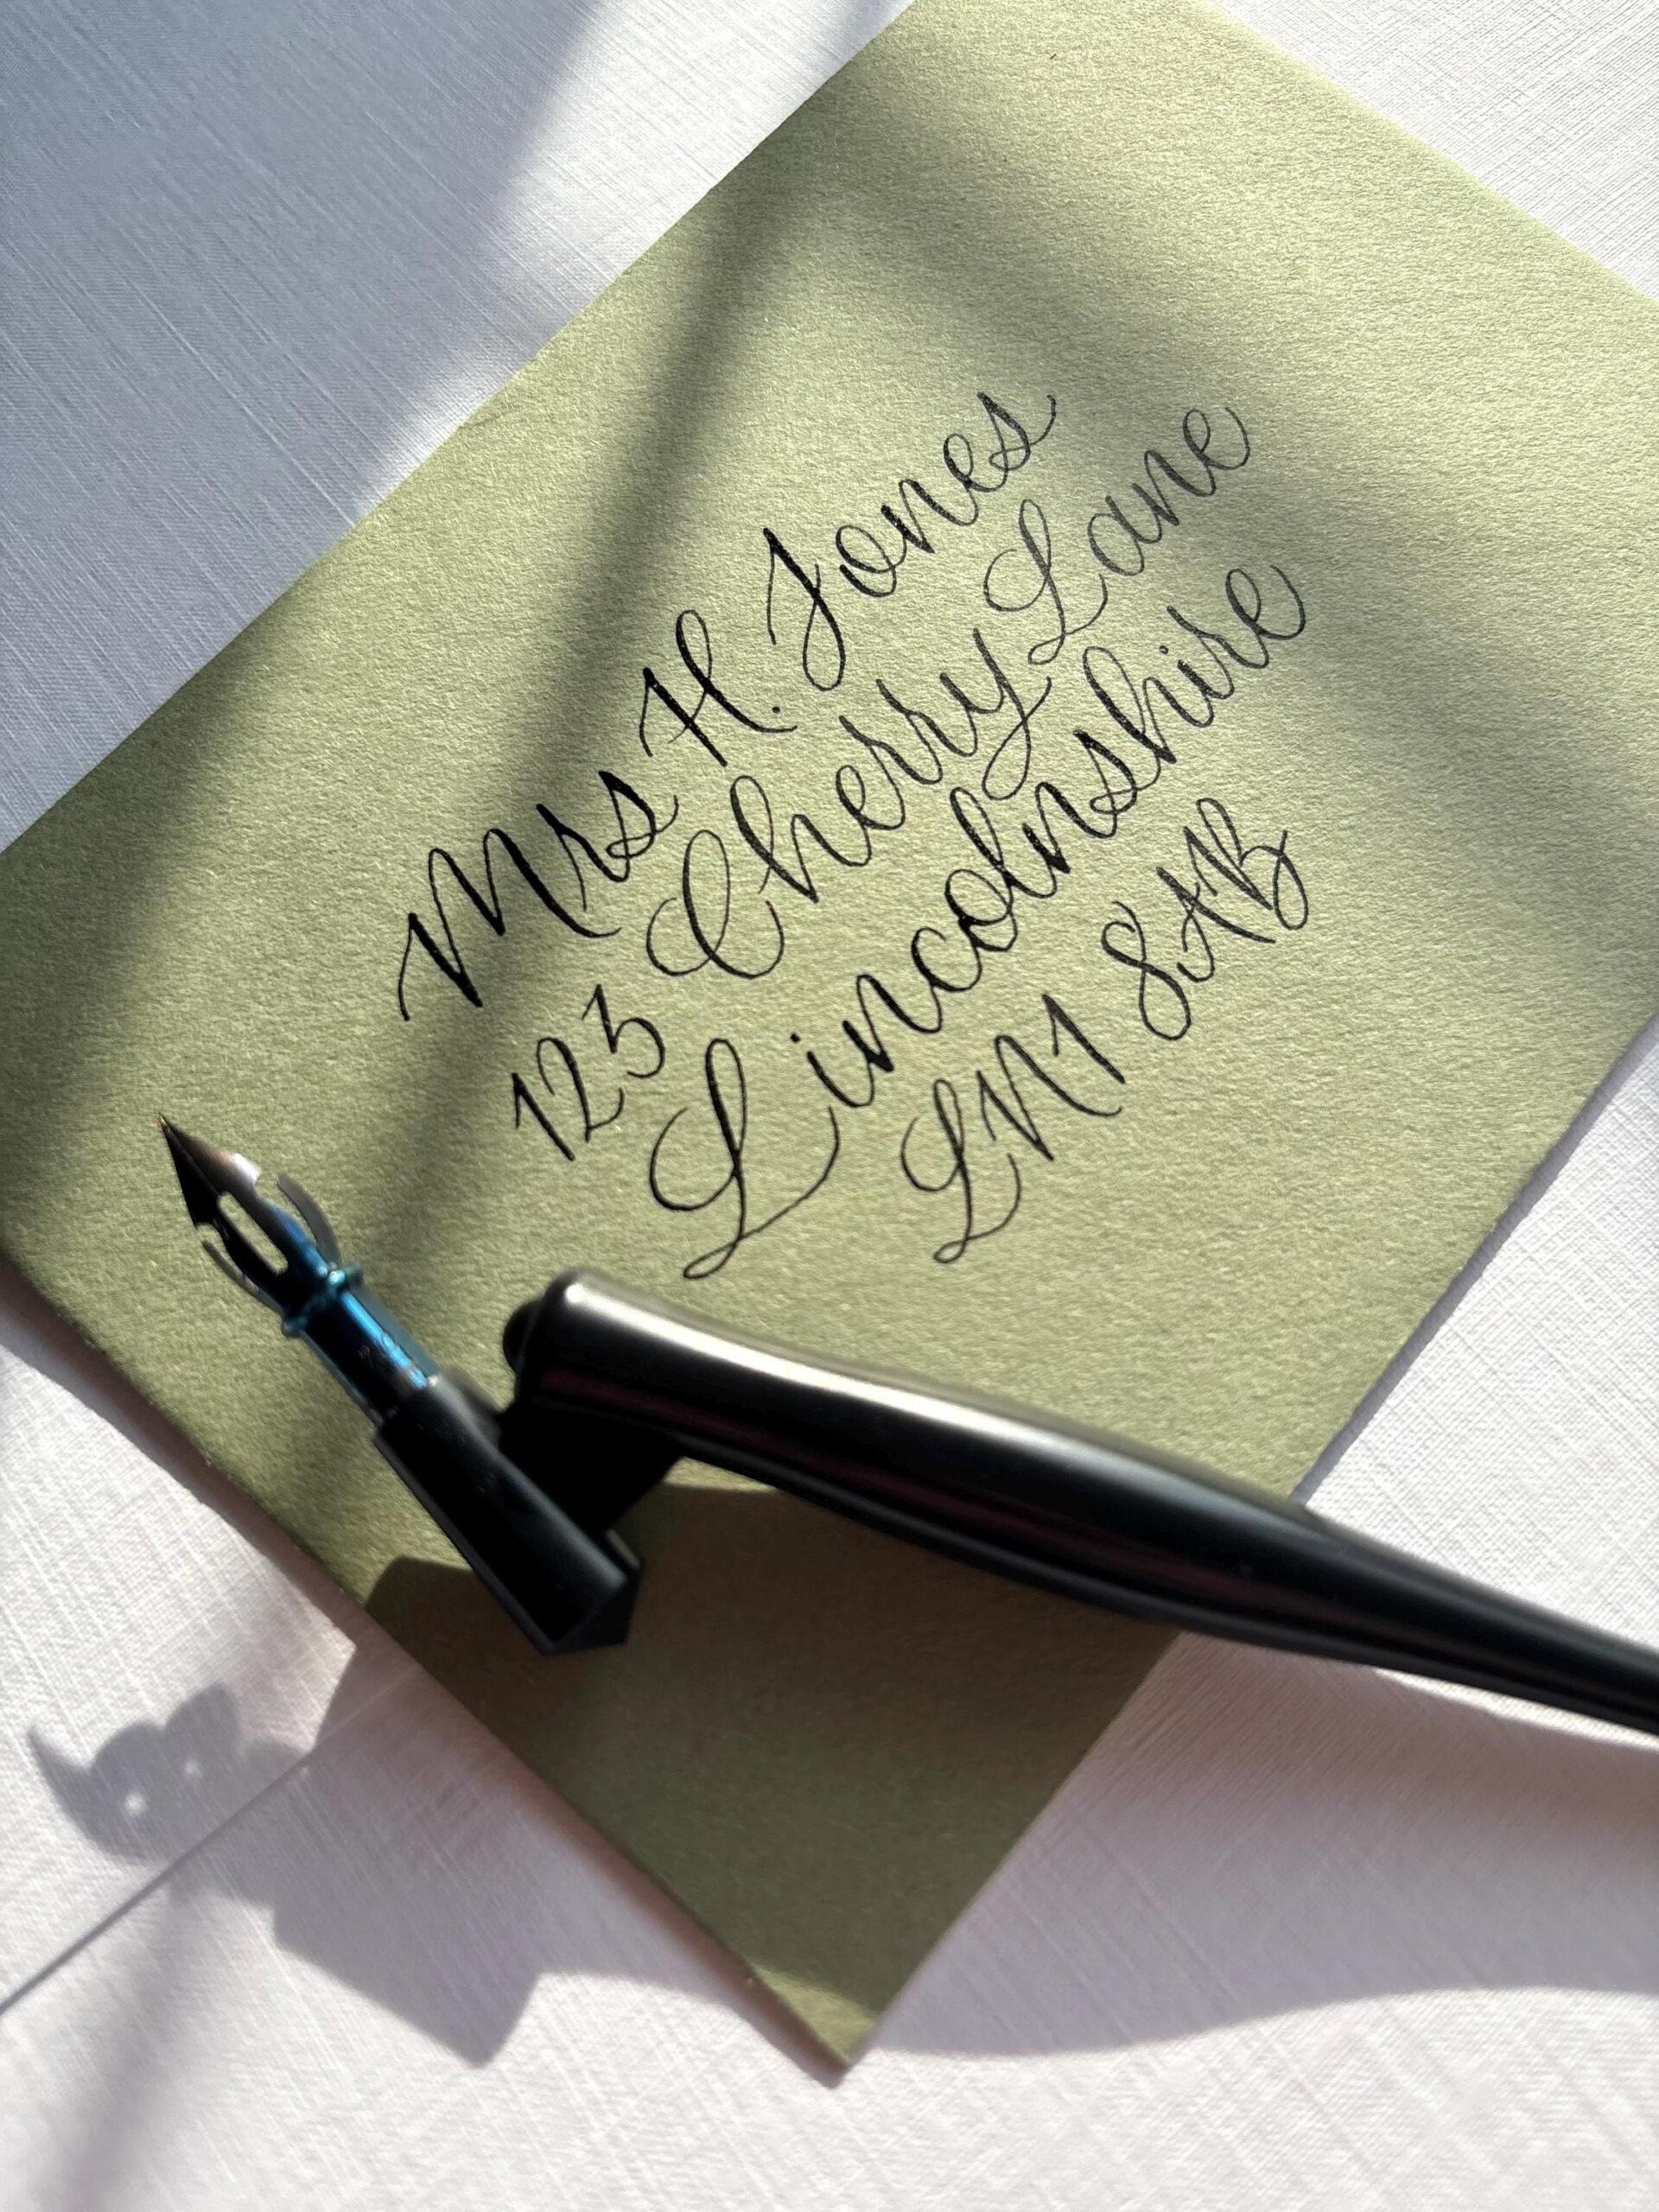 Mrs H. Jones
123 Cherry Lane
Lincolnshire
LN1 8AB